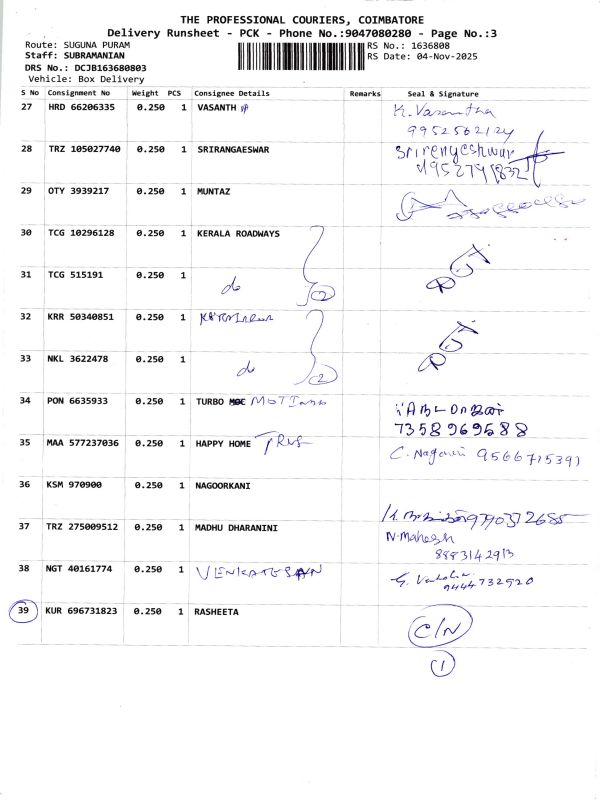 THE PROFESSIONAL COURIERS, COIMBATORE
Delivery Runsheet - PCK - Phone No.:9047080280 - Page No.:3
Route: SUGUNA PURAM RS No.: 1636808
Staff: SUBRAMANIAN RS Date: 04-Nov-2025
DRS No.: DCJB163680803
Vehicle: Box Delivery
S No Consignment No Weight PCS Consignee Details Remarks Seal & Signature
27 HRD 66206335 0.250 1 VASANTH K. Vasantha
9952562124
28 TRZ 105027740 0.250 1 SRIRANGAESWAR
29 OTY 3939217 0.250 1 MUNTAZ
30 TCG 10296128 0.250 1 KERALA ROADWAYS
31 TCG 515191 0.250 1 do 2
32 KRR 50340851 0.250 1
33 NKL 3622478 0.250 1 do 2
34 PON 6635933 0.250 1 TURBO
7358969588
35 MAA 577237036 0.250 1 HAPPY HOME C. Nagavi 9566715391
36 KSM 970900 0.250 1 NAGOORKANI
37 TRZ 275009512 0.250 1 MADHU DHARANINI 9790372685
N. Mahesh
8883142913
38 NGT 40161774 0.250 1 VENKATESAN
9444732920
39 KUR 696731823 0.250 1 RASHEETA C/N
1